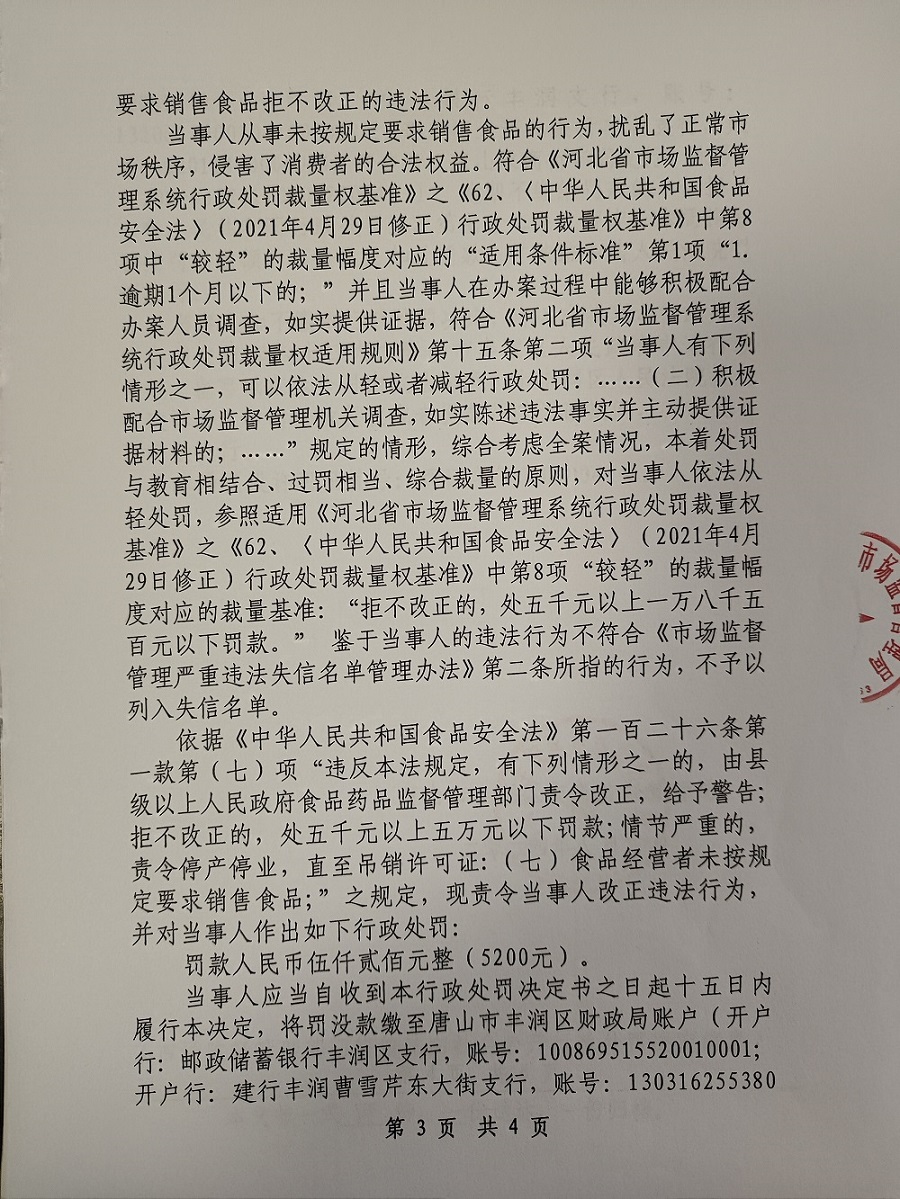 要求销售食品拒不改正的违法行为。
当事人从事未按规定要求销售食品的行为,扰乱了正常市
场秩序，侵害了消费者的合法权益。符合《河北省市场监督管
理系统行政处罚裁量权基准》之《62、〈中华人民共和国食品
安全法〉（2021年4月29日修正）行政处罚裁量权基准》中第8
项中“较轻”的裁量幅度对应的“适用条件标准”第1项“1.
逾期1个月以下的；”并且当事人在办案过程中能够积极配合
办案人员调查，如实提供证据，符合《河北省市场监督管理系
统行政处罚裁量权适用规则》第十五条第二项“当事人有下列
情形之一，可以依法从轻或者减轻行政处罚：……（二）积极
配合市场监督管理机关调查，如实陈述违法事实并主动提供证
据材料的；……”规定的情形，综合考虑全案情况，本着处罚
与教育相结合、过罚相当、综合裁量的原则，对当事人依法从
轻处罚，参照适用《河北省市场监督管理系统行政处罚裁量权
基准》之《62、〈中华人民共和国食品安全法〉（2021年4月
29日修正）行政处罚裁量权基准》中第8项“较轻”的裁量幅
度对应的裁量基准：“拒不改正的，处五千元以上一万八千五
百元以下罚款。” 鉴于当事人的违法行为不符合《市场监督
管理严重违法失信名单管理办法》第二条所指的行为，不予以
列入失信名单。
依据《中华人民共和国食品安全法》第一百二十六条第
一款第（七）项“违反本法规定，有下列情形之一的，由县
级以上人民政府食品药品监督管理部门责令改正，给予警告;
拒不改正的，处五千元以上五万元以下罚款;情节严重的，
责令停产停业，直至吊销许可证:（七）食品经营者未按规
定要求销售食品;”之规定，现责令当事人改正违法行为，
并对当事人作出如下行政处罚:
罚款人民币伍仟贰佰元整（5200元）。
当事人应当自收到本行政处罚决定书之日起十五日内
履行本决定，将罚没款缴至唐山市丰润区财政局账户（开户
行：邮政储蓄银行丰润区支行，账号：100869515520010001;
开户行：建行丰润曹雪芹东大街支行，账号：130316255380
第 3 页 共 4 页
市场监督管理局